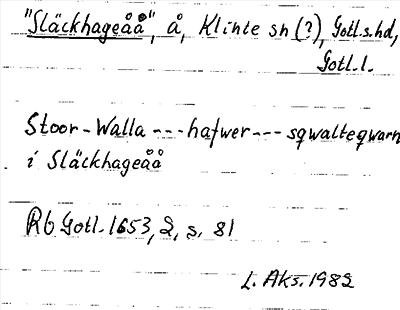 "Släckhageåå", å, Klinte sn (?), Gotl.s.hd,
Gotl.l.
Stoor-Walla --- hafwer --- sqwalteqwarn
i Släckhageåå
Rb Gotl. 1653, 2, s. 81
L. Aks. 1982